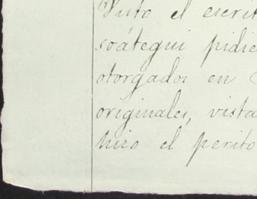 Visto el escrit
soátegui pidie
otorgados en
originales, vista
hizo el perito